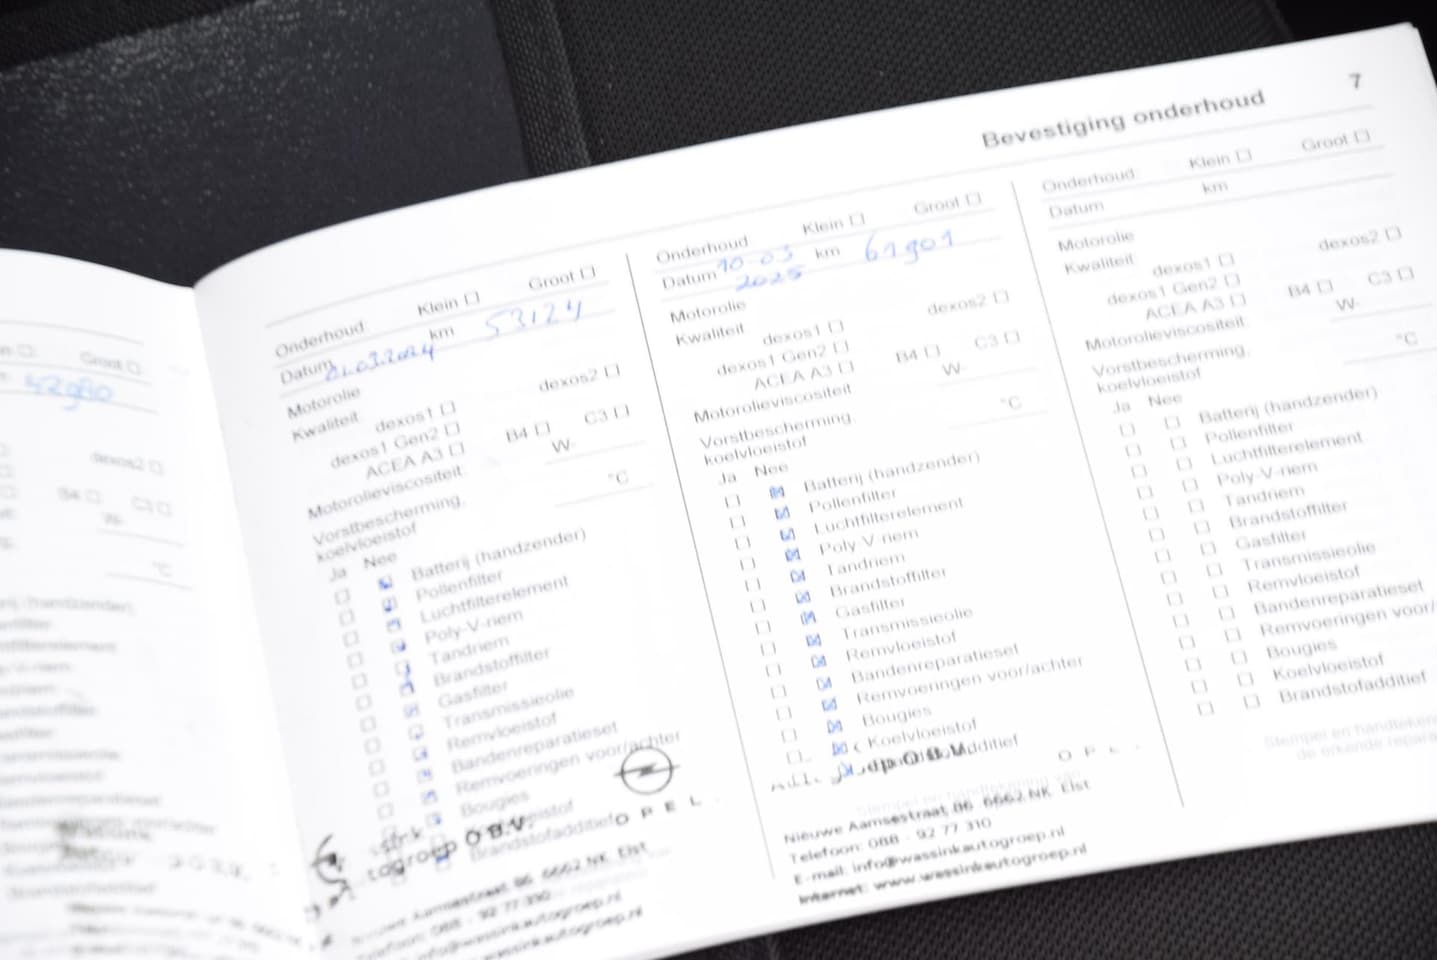 7
Bevestiging onderhoud
Groot
42980
dexos2
B4 C3
W-
°C
Onderhoud: Klein Groot
Datum 01032024 km 53124
Motorolie
Kwaliteit: dexos1 dexos2
dexos1 Gen2
ACEA A3 B4 C3
Motorolieviscositeit: W-
Vorstbescherming,
koelvloeistof °C
Ja Nee
Batterij (handzender)
Pollenfilter
Luchtfilterelement
Poly-V-riem
Tandriem
Brandstoffilter
Gasfilter
Transmissieolie
Remvloeistof
Bandenreparatieset
Remvoeringen voor/achter
Bougies
Brandstofadditief
OPEL
Nieuwe Aamsestraat 86 6662 NK Elst
Telefoon: 088 - 92 77 310
info@wassinkautogroep.nl
www.wassinkautogroep.nl
Onderhoud Klein Groot
Datum 10-03 km 61901
2025
Motorolie
Kwaliteit dexos1 dexos2
dexos1 Gen2
ACEA A3 B4 C3
Motorolieviscositeit W-
Vorstbescherming,
koelvloeistof °C
Ja Nee
Batterij (handzender)
Pollenfilter
Luchtfilterelement
Poly-V-riem
Tandriem
Brandstoffilter
Gasfilter
Transmissieolie
Remvloeistof
Bandenreparatieset
Remvoeringen voor/achter
Bougies
Koelvloeistof
OPEL
Nieuwe Aamsestraat 86 6662 NK Elst
Telefoon: 088 - 92 77 310
E-mail: info@wassinkautogroep.nl
Internet: www.wassinkautogroep.nl
Onderhoud: Klein Groot
Datum km
Motorolie
Kwaliteit: dexos1 dexos2
dexos1 Gen2
ACEA A3 B4 C3
Motorolieviscositeit: W-
Vorstbescherming,
koelvloeistof °C
Ja Nee
Batterij (handzender)
Pollenfilter
Luchtfilterelement
Poly-V-riem
Tandriem
Brandstoffilter
Gasfilter
Transmissieolie
Remvloeistof
Bandenreparatieset
Remvoeringen voor/
Bougies
Koelvloeistof
Brandstofadditief
Stempel en handteken
de erkende repara